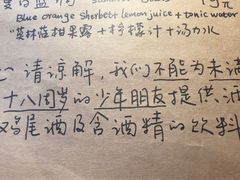 Blue orange Sherbett lemon juice + tonic water
"莫林蓝柑果露 + 柠檬汁 + 汤力水
请谅解,我们不能为未满
十八周岁的少年朋友提供酒
鸡尾酒及含酒精的饮料